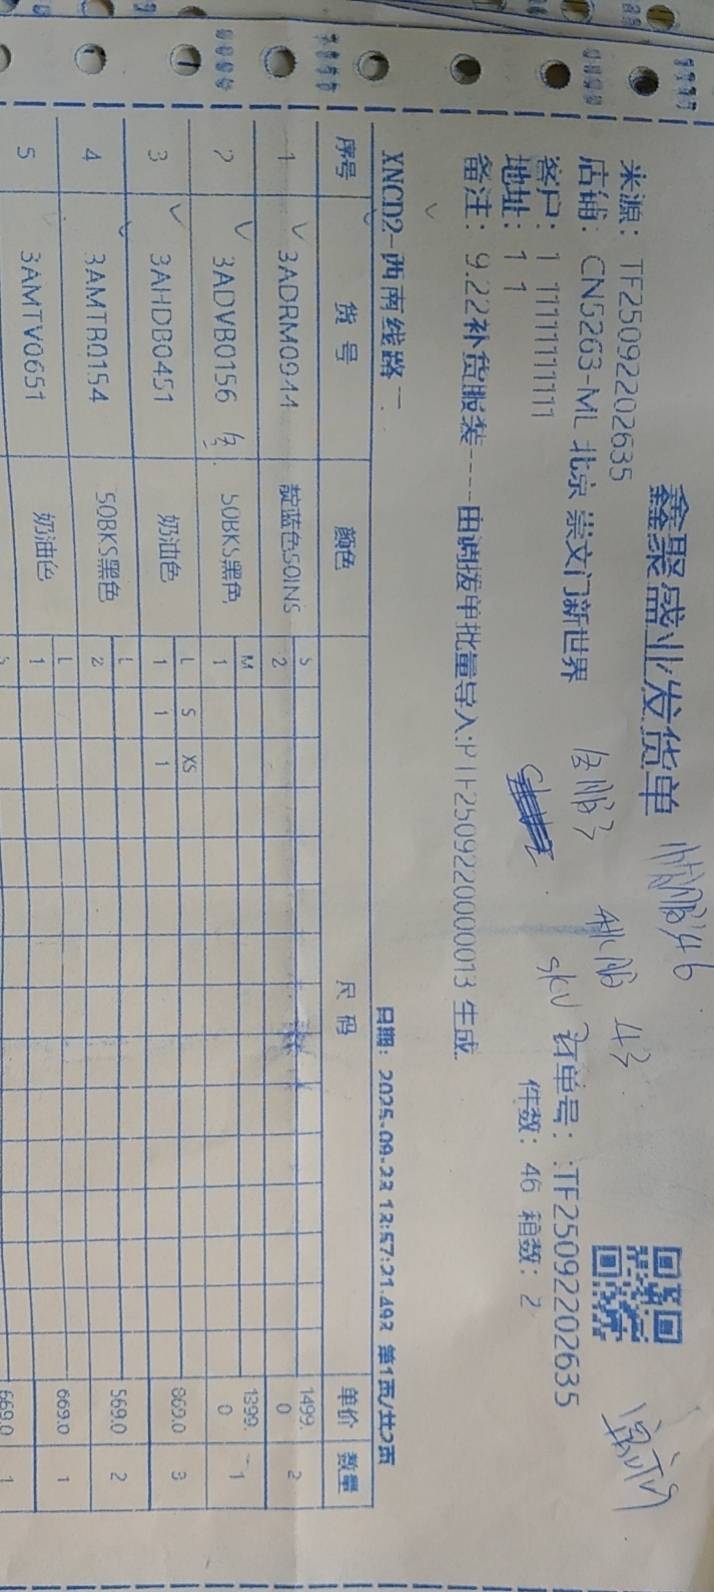 鑫聚盛业发货单
来源: TF25092202635
店铺: CN5263-ML 北京 崇文门新世界
客户: 1 11111111111
订单号: :TF25092202635
地址: 1 1
件数: 46 箱数: 2
备注: 9.22补货服装----由调拨单批量导入:PTF2509220000013 生成.
46
43
sku
XNCD2-西南线路一
日期: 2025-09-22 12:57:21.492 第1页/共2页
序号 货 号 颜色 尺 码 单价 数量
1 3ADRM0944 靛蓝色50INS S 2 1499.0 2
2 3ADVB0156 50BKS黑色 M 1 1399.0 1
3 3AHDB0451 奶油色 L S XS 1 1 1 869.0 3
4 3AMTB0154 50BKS黑色 L 2 569.0 2
5 3AMTV0651 奶油色 L 1 669.0 1
669.0 1